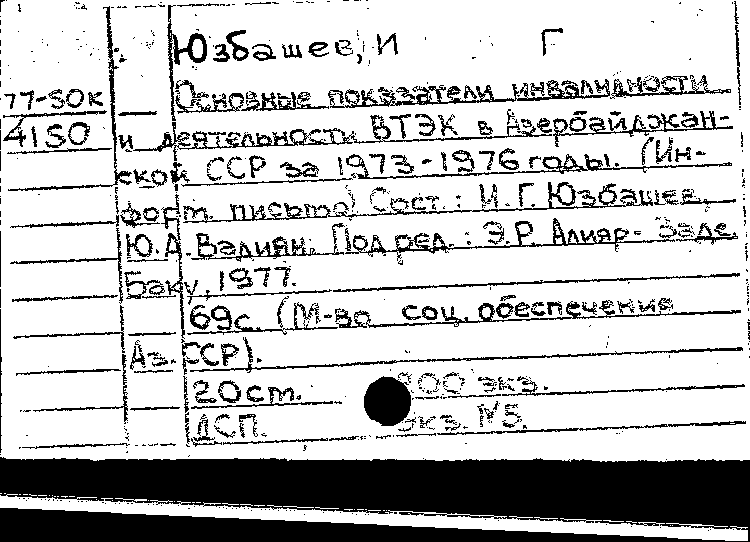 Юзбашев, И Г
77-50к Основные показатели инвалидности
4150 и деятельности ВТЭК в Азербайджан-
ской ССР за 1973-1976 годы. (Ин-
форм. письмо) Сост.: И.Г. Юзбашев,
Ю.А. Валиян; Под ред.: Э.Р. Алияр-Заде.
Баку, 1977.
69с. (М-во соц. обеспечения
Аз. ССР).
20 ст. 200 экз.
ДСП. Экз. N5.